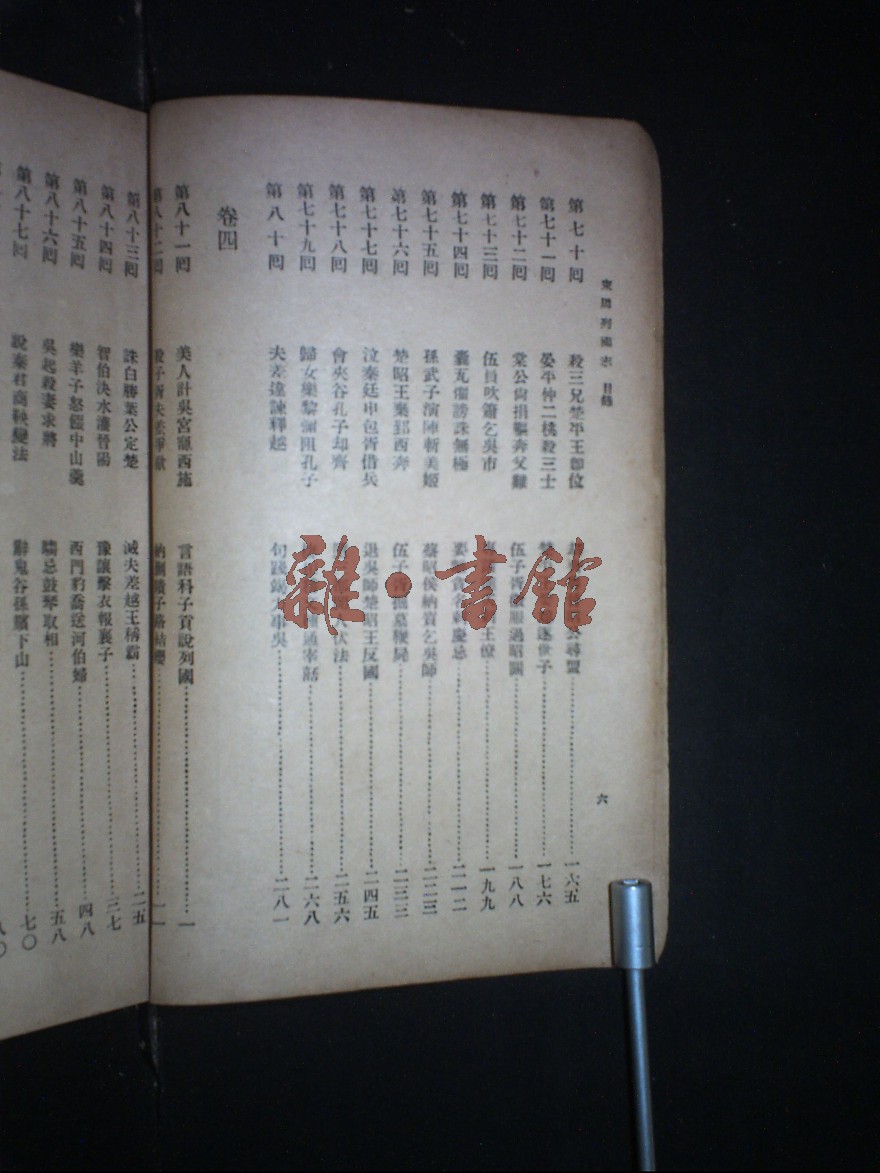 東周列國志 目錄
六
第七十回 殺三兄楚平王即位 尋盟 一六五
第七十一回 晏平仲二桃殺三士 逐世子 一七六
第七十二回 棠公尚捐軀奔父難 伍子胥 過昭關 一八八
第七十三回 伍員吹簫乞吳市 王僚 一九九
第七十四回 囊瓦懼謗誅無極 要 刺慶忌 二一二
第七十五回 孫武子演陣斬美姬 蔡昭侯納質乞吳師 二二三
第七十六回 楚昭王棄郢西奔 伍子胥掘墓鞭屍 二三三
第七十七回 泣秦廷申包胥借兵 退吳師楚昭王反國 二四五
第七十八回 會夾谷孔子却齊 伏法 二五六
第七十九回 歸女樂黎彌阻孔子 通宰嚭 二六八
第八十回 夫差違諫釋越 句踐 事吳 二八一
卷四
第八十一回 美人計吳宮寵西施 言語科子貢說列國 一
第八十二回 殺子胥夫差爭歃 納蒯瞶子路結纓 一一
第八十三回 誅白勝葉公定楚 滅夫差越王稱霸 二五
第八十四回 智伯決水灌晉陽 豫讓擊衣報襄子 三七
第八十五回 樂羊子怒餟中山羹 西門豹喬送河伯婦 四八
第八十六回 吳起殺妻求將 騶忌鼓琴取相 五八
第八十七回 說秦君商鞅變法 辭鬼谷孫臏下山 七〇
雜·書館